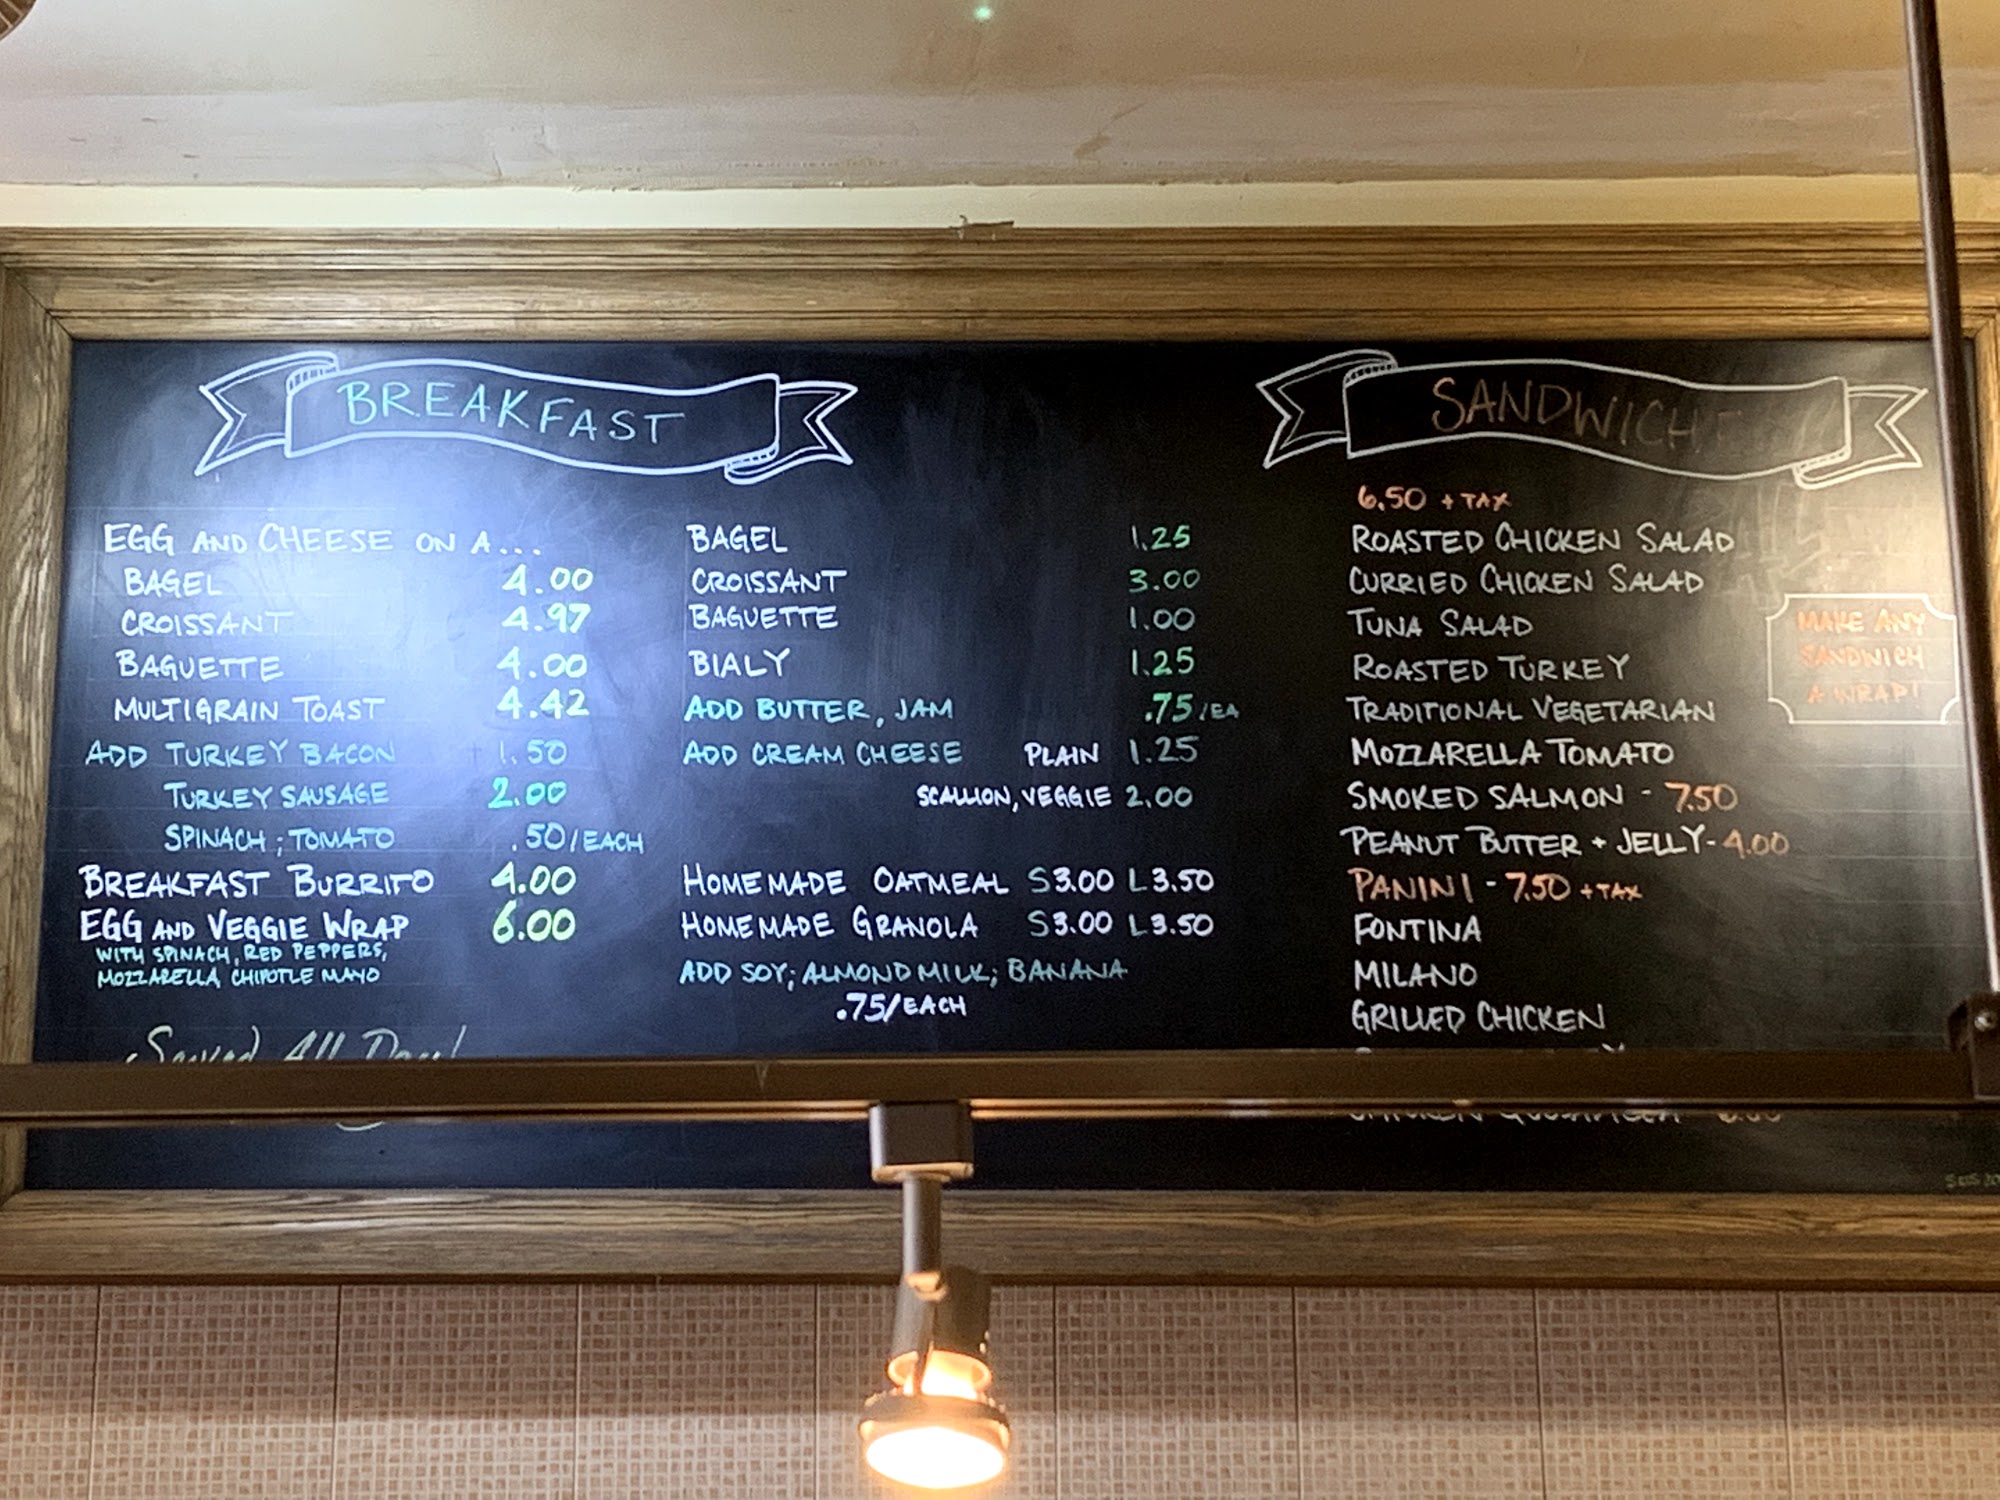 BREAKFAST
EGG AND CHEESE ON A...
BAGEL 4.00
CROISSANT 4.97
BAGUETTE 4.00
MULTIGRAIN TOAST 4.42
ADD TURKEY BACON 1.50
TURKEY SAUSAGE 2.00
SPINACH; TOMATO .50/EACH
BREAKFAST BURRITO 4.00
EGG AND VEGGIE WRAP 6.00
WITH SPINACH, RED PEPPERS,
MOZZARELLA, CHIPOTLE MAYO
Served All Day!
BAGEL 1.25
CROISSANT 3.00
BAGUETTE 1.00
BIALY 1.25
ADD BUTTER, JAM .75/EA
ADD CREAM CHEESE PLAIN 1.25
SCALLION, VEGGIE 2.00
HOMEMADE OATMEAL S 3.00 L 3.50
HOMEMADE GRANOLA S 3.00 L 3.50
ADD SOY; ALMOND MILK; BANANA
.75/EACH
SANDWICH
6.50 + TAX
ROASTED CHICKEN SALAD
CURRIED CHICKEN SALAD
TUNA SALAD
ROASTED TURKEY
TRADITIONAL VEGETARIAN
MOZZARELLA TOMATO
SMOKED SALMON - 7.50
PEANUT BUTTER + JELLY - 4.00
PANINI - 7.50 + TAX
FONTINA
MILANO
GRILLED CHICKEN
MAKE ANY
SANDWICH
A WRAP!